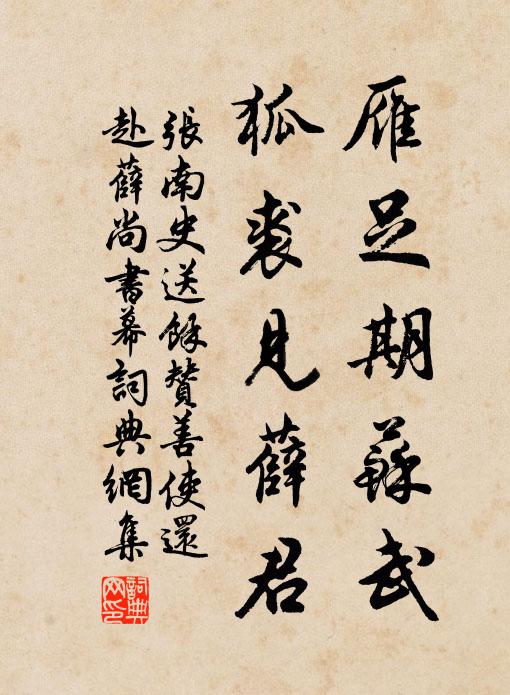 雁足期蘇武
狐裘見薛君
張南史送餘贊善使還
赴薛尚書幕詞典網集
詞典
网印